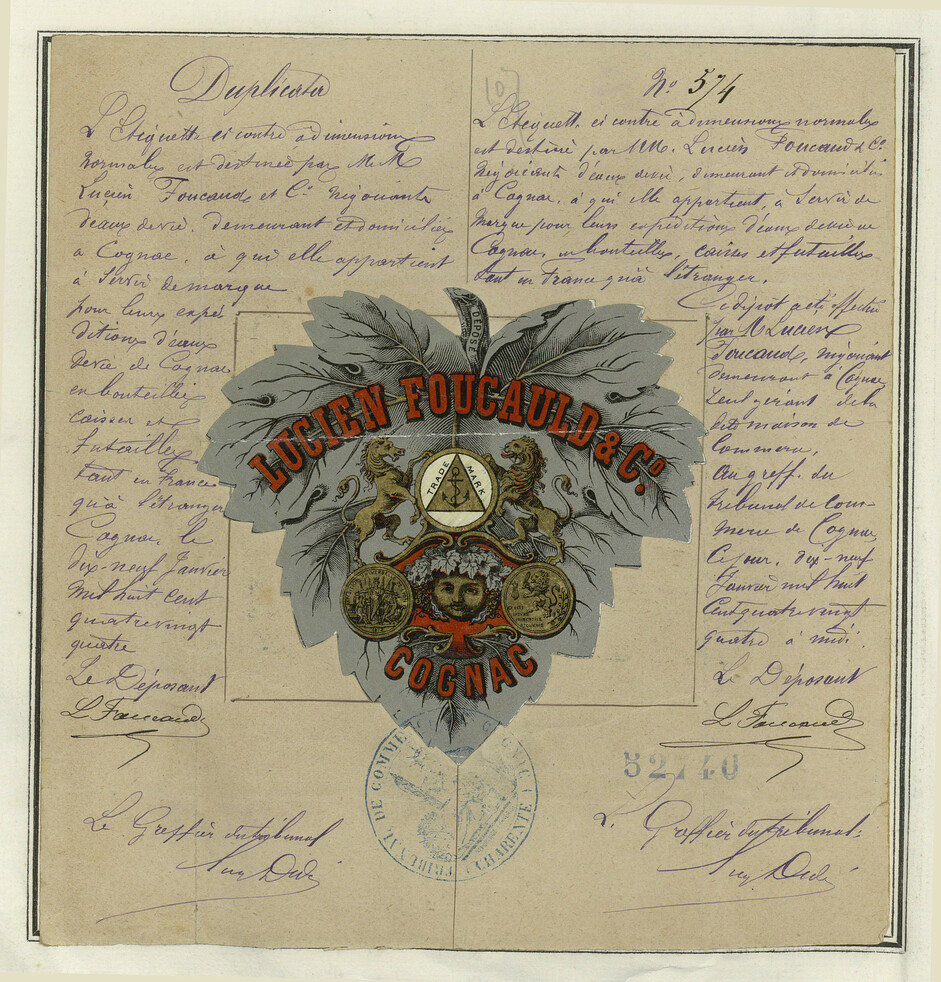 Duplicata
L'Etiquette ci contre à dimensions
normales est destinée par M.M.
Lucien Foucauld et Cie Négociants
d'eaux de vie, demeurant et domiciliés
à Cognac, à qui elle appartient
à servir de marque
pour leurs expé
ditions d'eaux
de vie de Cognac
en bouteilles
caisses et
futailles
tant en France
qu'à l'étranger
Cognac, le
dix-neuf Janvier
mil huit cent
quatrevingt
quatre
Le Déposant
L Foucauld
Le Greffier du tribunal
107
No 574
L'Etiquette ci contre à dimensions normales
est destiné par MM. Lucien Foucauld & Cie
Négociants d'eaux de vie, demeurant et domiciliés
à Cognac, à qui elle appartient, à servir de
marque pour leurs expéditions d'eaux de vie de
Cognac, en bouteilles, caisses et futailles
tant en France qu'à l'étranger.
Ce dépot a été effectué
par M Lucien
Foucauld, négociant
demeurant à Cognac
seul gérant de la
dite maison de
Commerce,
au greffe du
tribunal de Com-
merce de Cognac
ce jour, dix-neuf
Janvier mil huit
cent quatrevingt
quatre à midi.
Le Déposant
L Foucauld
52140
Le Greffier du tribunal
DÉPOSÉ
LUCIEN FOUCAULD & Co.
TRADE MARK
COGNAC
TRIBUNAL DE COMMERCE
CHARENTE